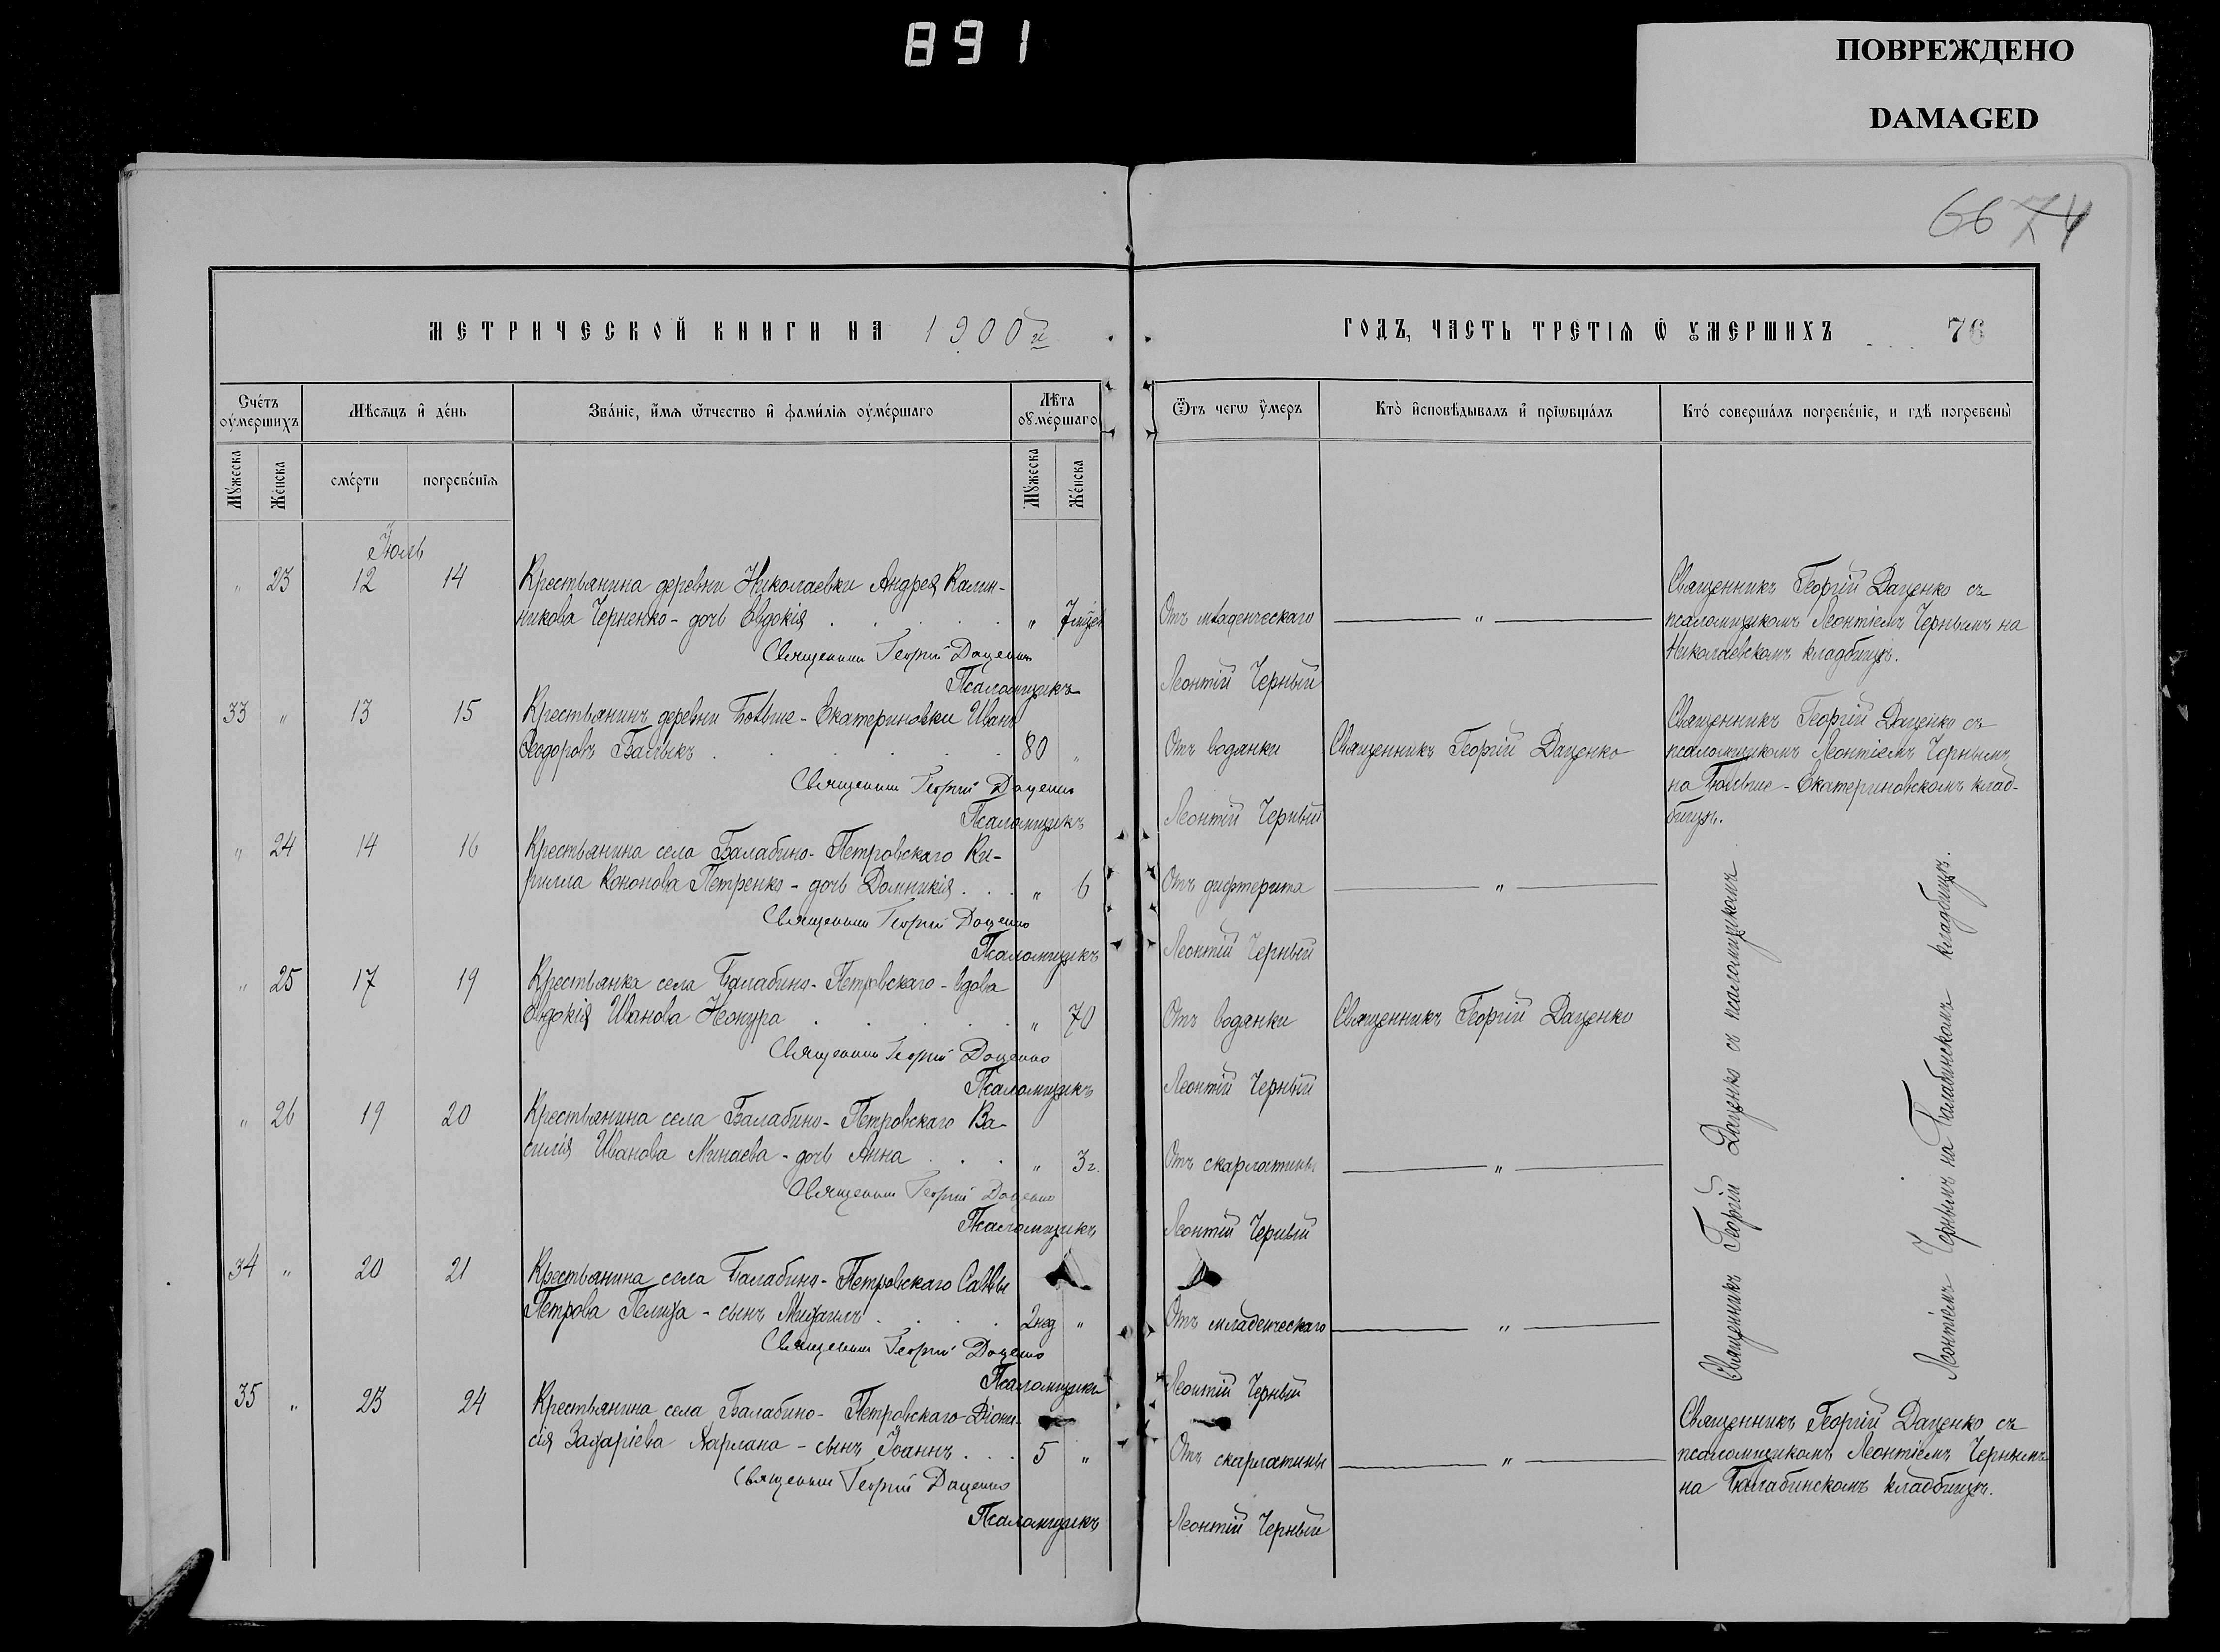 891
ПОВРЕЖДЕНО
DAMAGED
66 74
МЕТРИЧЕСКОЙ КНИГИ НА 1900й
ГОДЪ, ЧАСТЬ ТРЕТІѦ Ѿ УМЕРШИХЪ 76
Счетъ оумершихъ
Мѣсѧцъ и день
Званіе, имѧ ѿтчество и фамиліѧ оумершаго
Лѣта оумершаго
Ѿтъ чегѡ умеръ
Кто исповѣдывалъ и пріѡбщалъ
Кто совершалъ погребеніе, и гдѣ погребены
Мужеска
Женска
смерти
погребеніѧ
Мужеска
Женска
Іюль
" 23 12 14 Крестьянина деревни Николаевки Андрея Калин-
никова Черненко - дочь Евдокія " 7 Отъ младенческаго "
Священникъ Георгій Даценко
Псаломщикъ Леонтій Черный
Священникъ Георгій Даценко съ
псаломщикомъ Леонтіемъ Чернымъ на
Николаевскомъ кладбищѣ.
33 " 13 15 Крестьянинъ деревни Больше-Екатериновки Иванъ
Ѳеодоровъ 80 " Отъ водянки Священникъ Георгій Даценко
Священникъ Георгій Даценко
Псаломщикъ Леонтій Черный
Священникъ Георгій Даценко съ
псаломщикомъ Леонтіемъ Чернымъ
на Больше-Екатериновскомъ клад-
бищѣ.
" 24 14 16 Крестьянина села Балабино-Петровскаго Ки-
рилла Кононова Петренко - дочь Домникія " 6 Отъ дифтерита "
Священникъ Георгій Даценко
Псаломщикъ Леонтій Черный
" 25 17 19 Крестьянка села Балабино-Петровскаго - вдова
Евдокія Иванова " 70 Отъ водянки Священникъ Георгій Даценко
Священникъ Георгій Даценко
Псаломщикъ Леонтій Черный
" 26 19 20 Крестьянина села Балабино-Петровскаго Ва-
силія Иванова Минаева - дочь Анна " 3г. Отъ скарлатины "
Священникъ Георгій Даценко
Псаломщикъ Леонтій Черный
34 " 20 21 Крестьянина села Балабино-Петровскаго Саввы
Петрова - сынъ Михаилъ 2нед " Отъ младенческаго "
Священникъ Георгій Даценко
Псаломщикъ Леонтій Черный
Священникъ Георгій Даценко съ псаломщикомъ
Леонтіемъ Чернымъ на Балабинскомъ кладбищѣ.
35 " 23 24 Крестьянина села Балабино-Петровскаго Діони-
сія Захаріева Харлана - сынъ Іоаннъ 5 " Отъ скарлатины "
Священникъ Георгій Даценко
Псаломщикъ Леонтій Черный
Священникъ Георгій Даценко съ
псаломщикомъ Леонтіемъ Чернымъ
на Балабинскомъ кладбищѣ.